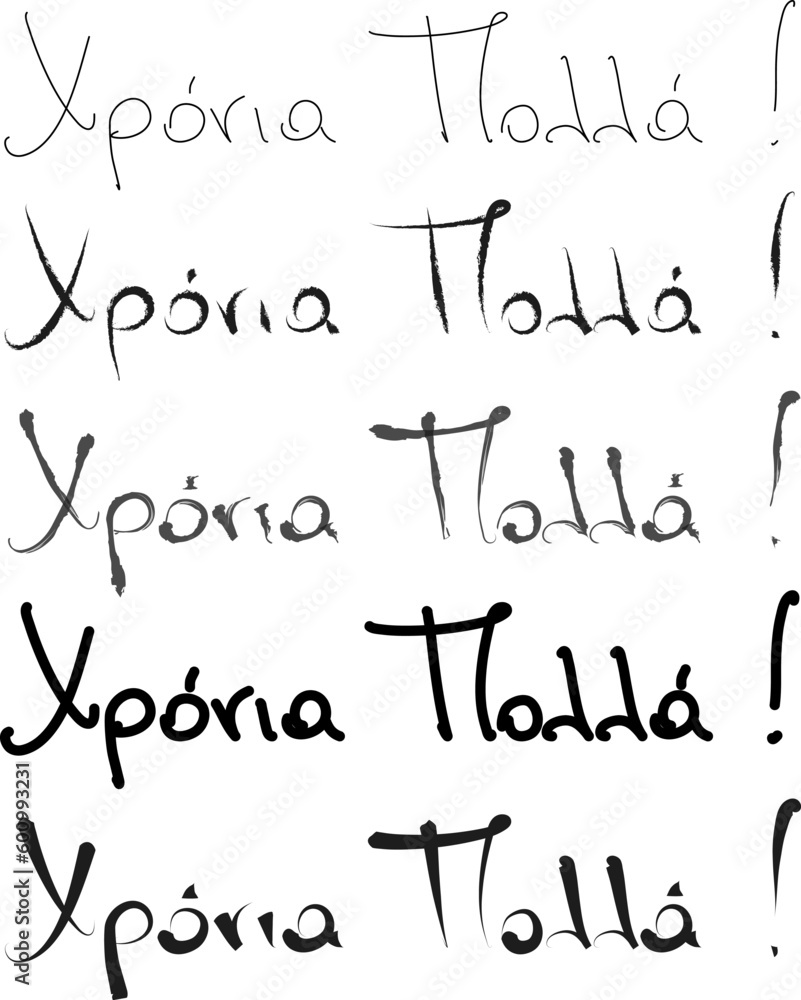 Χρόνια Πολλά !
Χρόνια Πολλά !
Χρόνια Πολλά !
Χρόνια Πολλά !
Χρόνια Πολλά !
Adobe Stock | #600993231